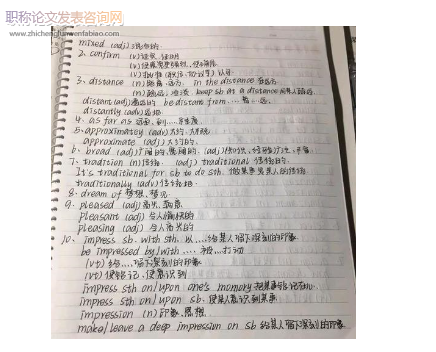 职称论文发表咨询网
www.zhichenglunwenfabiao.com
mixed (adj)
2. confirm (v) 证实, 证明
(v)
(v) 批准
3. distance (n) 距离, 远方. in the distance 在远方
(n) keep sb at a distance
distant (adj) 遥远的 be distant from....
distantly (adv)
4. as far as
5. approximately (adv) 大约, 大概
approximate (adj) 大约的
6. broad (adj)
7. tradition (n) 传统. (adj) traditional 传统的
It's traditional for sb to do sth.
traditionally (adv) 传统地
8. dream of 梦想, 梦见
9. pleased (adj) 高兴,
pleasant (adj) 令人愉快的
pleasing (adj) 令人高兴的
10. impress sb. with sth. 以....给某人留下深刻的印象
be impressed by/with .... 被....打动
(vt) 给....留下深刻的印象
(vt) 使铭记, 使意识到
impress sth on/upon one's memory
impress sth on/upon sb. 使某人意识到某事
impression (n) 印象, 思想
make/leave a deep impression on sb 给某人留下深刻的印象